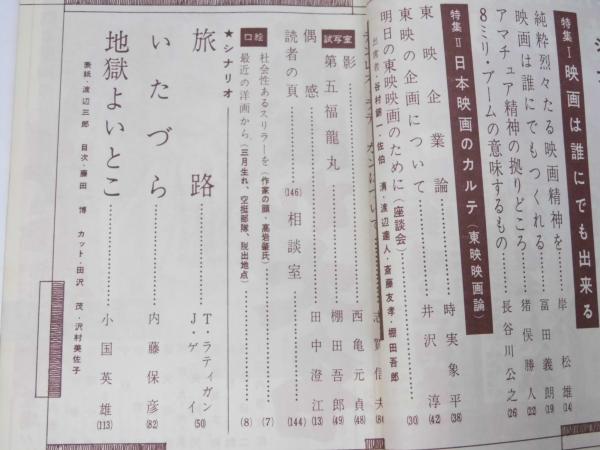 特集Ⅰ 映画は誰にでも出来る
純粋烈々たる映画精神を……岸松雄(14)
映画は誰にでもつくれる……冨田義朗(19)
アマチュア精神の拠りどころ……猪俣勝人(22)
8ミリ・ブームの意味するもの……長谷川公之(26)
特集Ⅱ 日本映画のカルテ(東映映画論)
東映企業論……時実象平(38)
東映の企画について……井沢淳(42)
明日の東映映画のために(座談会)……(30)
佐伯清・渡辺達人・斎藤友孝・棚田吾郎
志賀信夫
試写室
影……西亀元貞(48)
第五福龍丸……棚田吾郎(49)
偶感……田中澄江(13)
読者の頁……(146) 相談室……(144)
口絵
社会性あるスリラーを(作家の顔・高岩肇氏)……(7)
最近の洋画から(三月生れ、空挺部隊、脱出地点)……(8)
★シナリオ
旅路……T・ラティガン J・ゲイ(50)
いたづら……内藤保彦(82)
地獄よいとこ……小国英雄(113)
表紙・渡辺三郎 目次・藤田博 カット・田沢茂・沢村美佐子